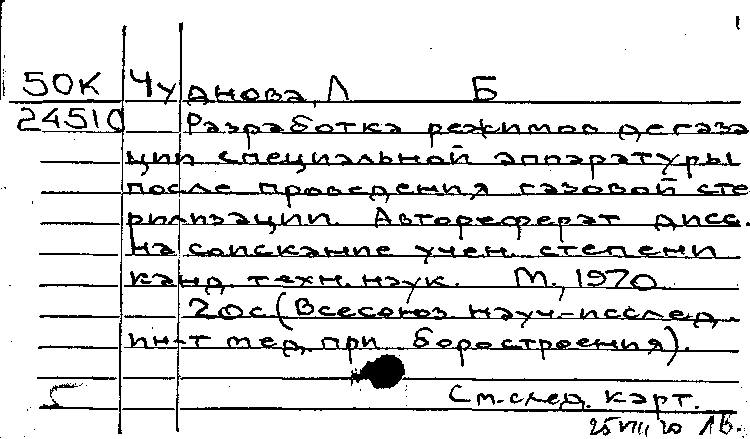 50К Чуднова, Л Б
24510 Разработка режимов дегаза
ции специальной аппаратуры
после проведения газовой сте
рилизации. Автореферат дисс.
на соискание учен. степени
канд. техн. наук. М., 1970
20с (Всесоюз. науч-исслед.
ин-т мед. приборостроения).
См. след. карт.
25 VIII 70